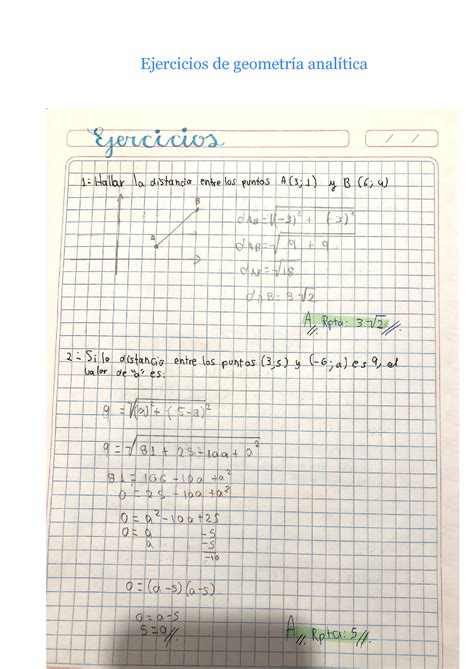 Ejercicios de geometría analítica
Ejercicios
/ /
1:- Hallar la distancia entre los puntos A(3;1) y B(6;4)
B
A
dAB=√(-3)² + (-3)²
dAB=√9 + 9
dAB=√18
dAB= 3√2
A Rpta: 3√2
2:- Si la distancia entre los puntos (3,5) y (-6;a) es 9, el
valor de "a" es:
9 = √(9)² + (5-a)²
9=√81 + 25-10a+a²
81 = 106 -10a +a²
0 = 25 - 10a +a²
0 = a² -10a +25
0 = a -5
a -5
-10
0 = (a-5)(a-5)
0=a-5
5=a
A Rpta: 5